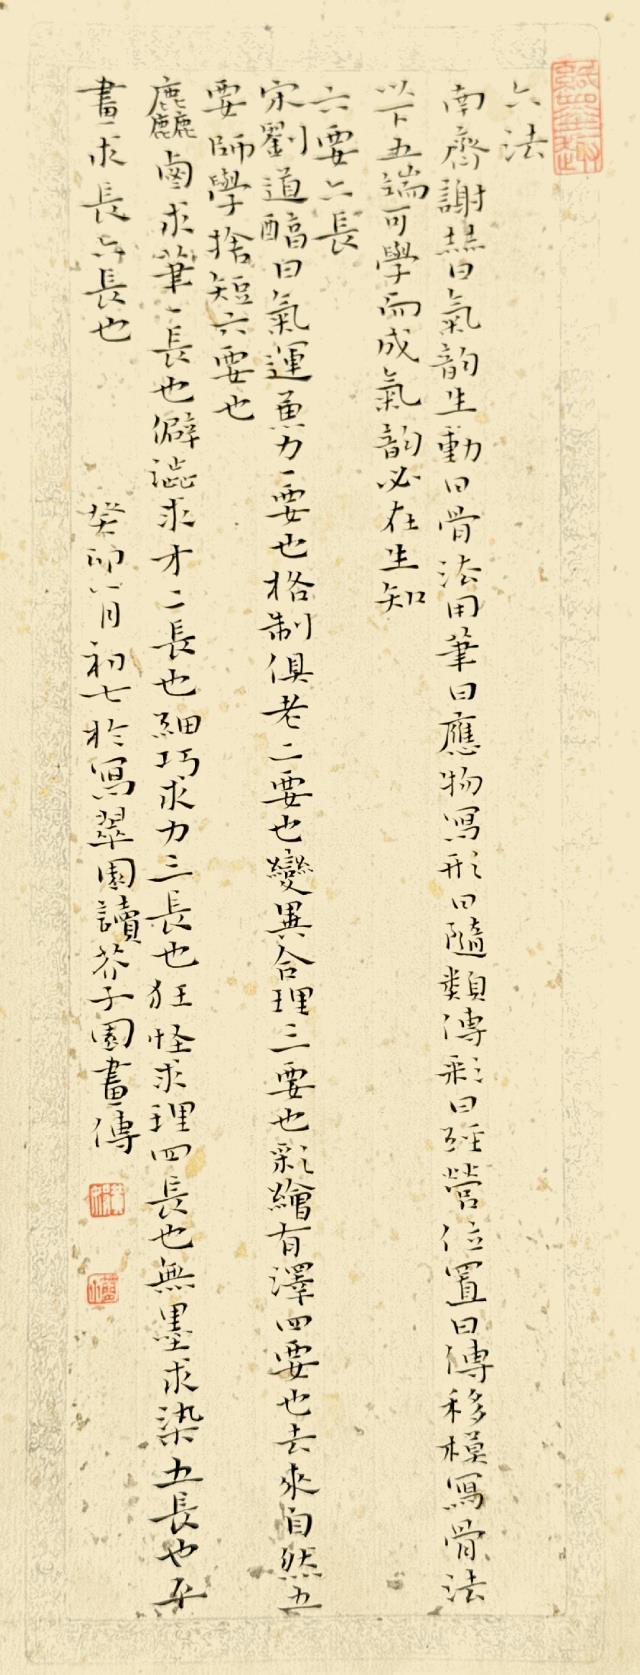 六法
南齊謝赫曰氣韵生動曰骨法用筆曰應物寫形曰隨類傅彩曰經營位置曰傳移模寫骨法
以下五端可學而成氣韵必在生知
六要六長
宋劉道醕曰氣運兼力一要也格制俱老二要也變異合理三要也彩繪有澤四要也去來自然五
要師學捨短六要也
麤鹵求筆一長也僻澁求才二長也細巧求力三長也狂怪求理四長也無墨求染五長也平
畫求長六長也
癸卯八月初七於寫翠園讀芥子園畫傳